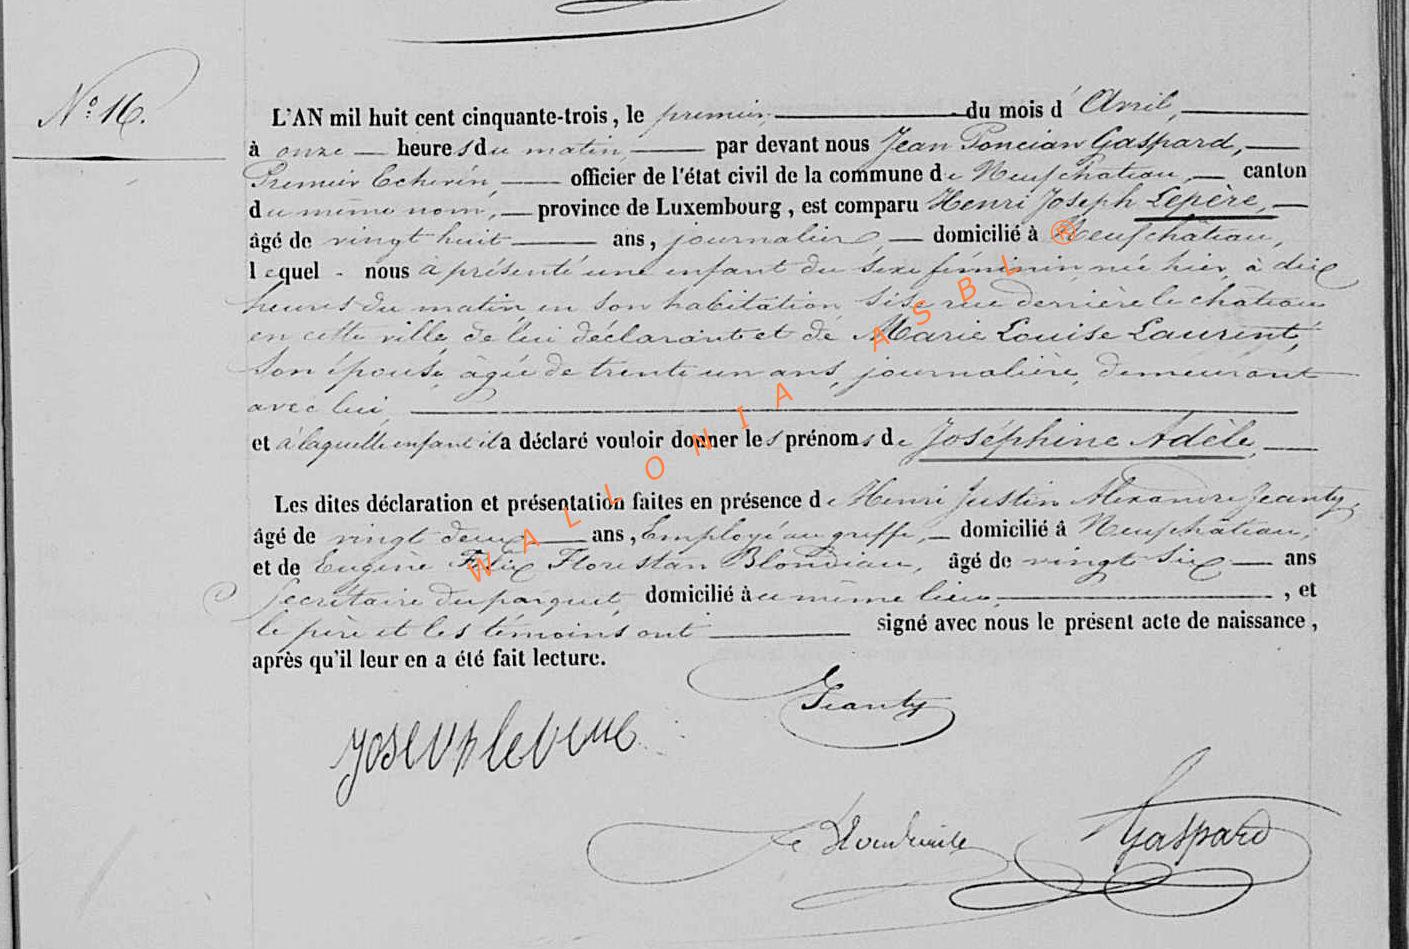 N.° 16.
L'AN mil huit cent cinquante-trois, le premier du mois d'Avril,
à onze heures du matin, par devant nous Jean Poncian Gaspard,
Premier Echevin, officier de l'état civil de la commune de Neufchateau, canton
du même nom, province de Luxembourg, est comparu Henri Joseph Lepère,
âgé de vingt huit ans, journalier, domicilié à Neufchateau,
lequel nous à présenté une enfant du sexe féminin née hier, à dix
heures du matin, en son habitation sise rue derrière le château
en cette ville de lui déclarant et de Marie Louise Laurent,
son épouse, âgée de trente un ans, journalière, demeurant
avec lui,
et à laquelle enfant il a déclaré vouloir donner les prénoms de Joséphine Adèle,
Les dites déclaration et présentation faites en présence de Henri Justin Alexandre Jeanty,
âgé de vingt deux ans, Employé au greffe, domicilié à Neufchateau,
et de Eugène Félix Florestan Blondiau âgé de vingt six ans
Secrétaire du parquet, domicilié au même lieu, , et
le père et les témoins ont signé avec nous le présent acte de naissance,
après qu'il leur en a été fait lecture.
Jeanty
Gaspard
WALLONIA ASBL ®